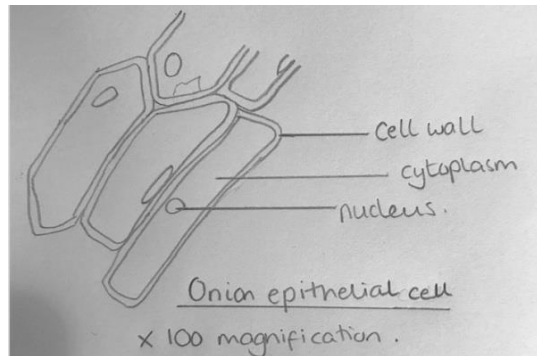 cell wall
cytoplasm
nucleus.
Onion epithelial cell
x 100 magnification.